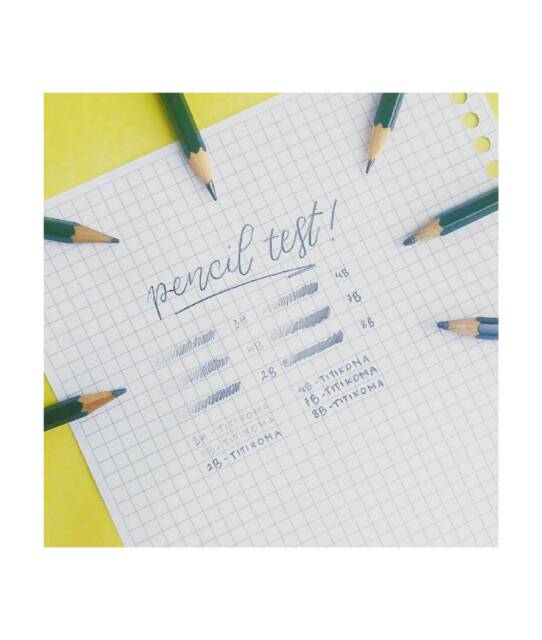 pencil test!
3H
4B
2B
4B
7B
8B
3H-TITIKOMA
-TITIKOMA
2B-TITIKOMA
4B-TITIKOMA
7B-TITIKOMA
8B-TITIKOMA